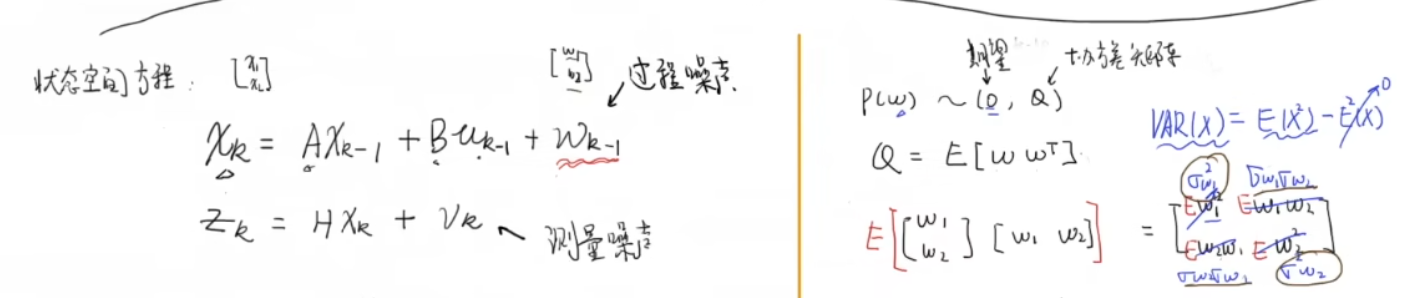 状态空间方程: [x₁ x₂]
[w₁ w₂] 过程噪声
X_k = A X_{k-1} + B u_{k-1} + w_{k-1}
Z_k = H X_k + V_k
测量噪声
期望 协方差矩阵
P(w) ~ (0, Q)
Q = E[w wᵀ]
VAR(X) = E(X²) - E²(X) 0
E[[w₁ w₂] [w₁ w₂]] = [E w₁² E w₁w₂
E w₂w₁ E w₂²]
σ²w₁ σw₁σw₂
σw₂σw₁ σ²w₂